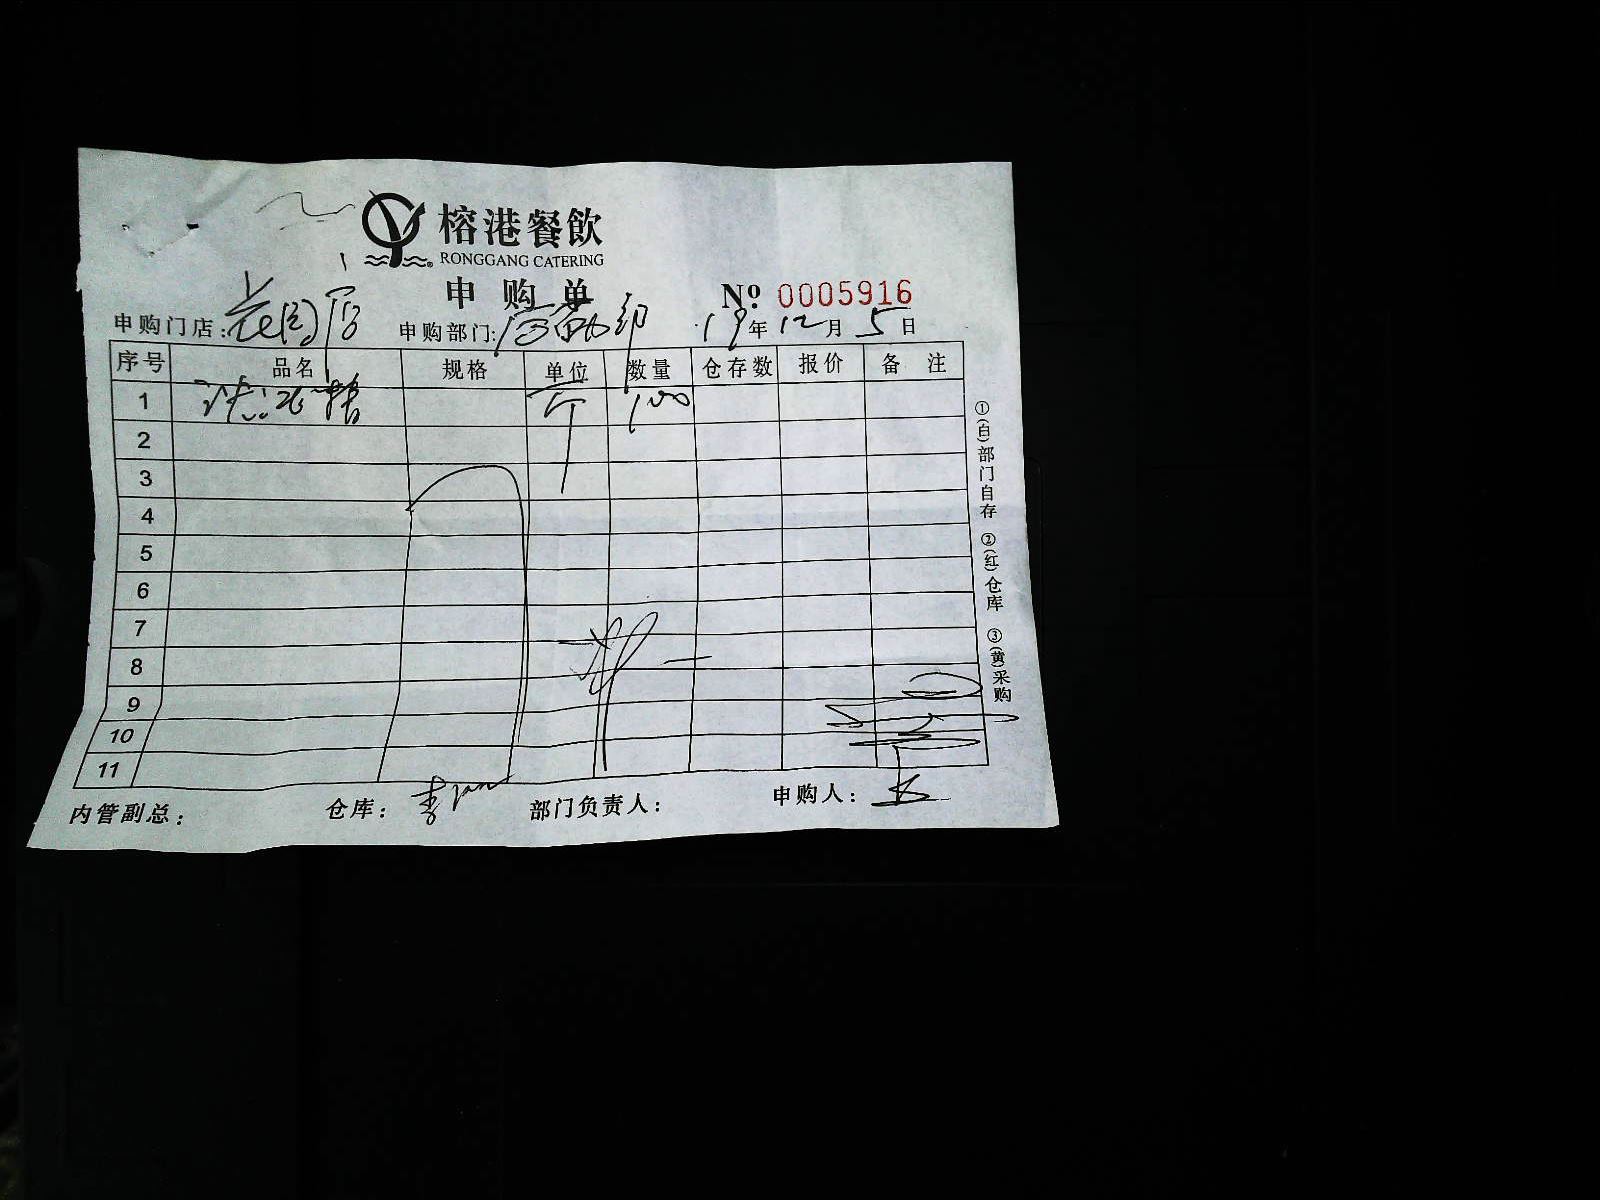 榕港餐飲
RONGGANG CATERING
申购单
Nº 0005916
申购门店: 花园店 申购部门: 后勤部 19年12月5日
序号 品名 规格 单位 数量 仓存数 报价 备注
1 个 100
2
3
4
5
6
7
8
9
10
11
内管副总: 仓库: 李 部门负责人: 申购人:
①(白)部门自存 ②(红)仓库 ③(黄)采购